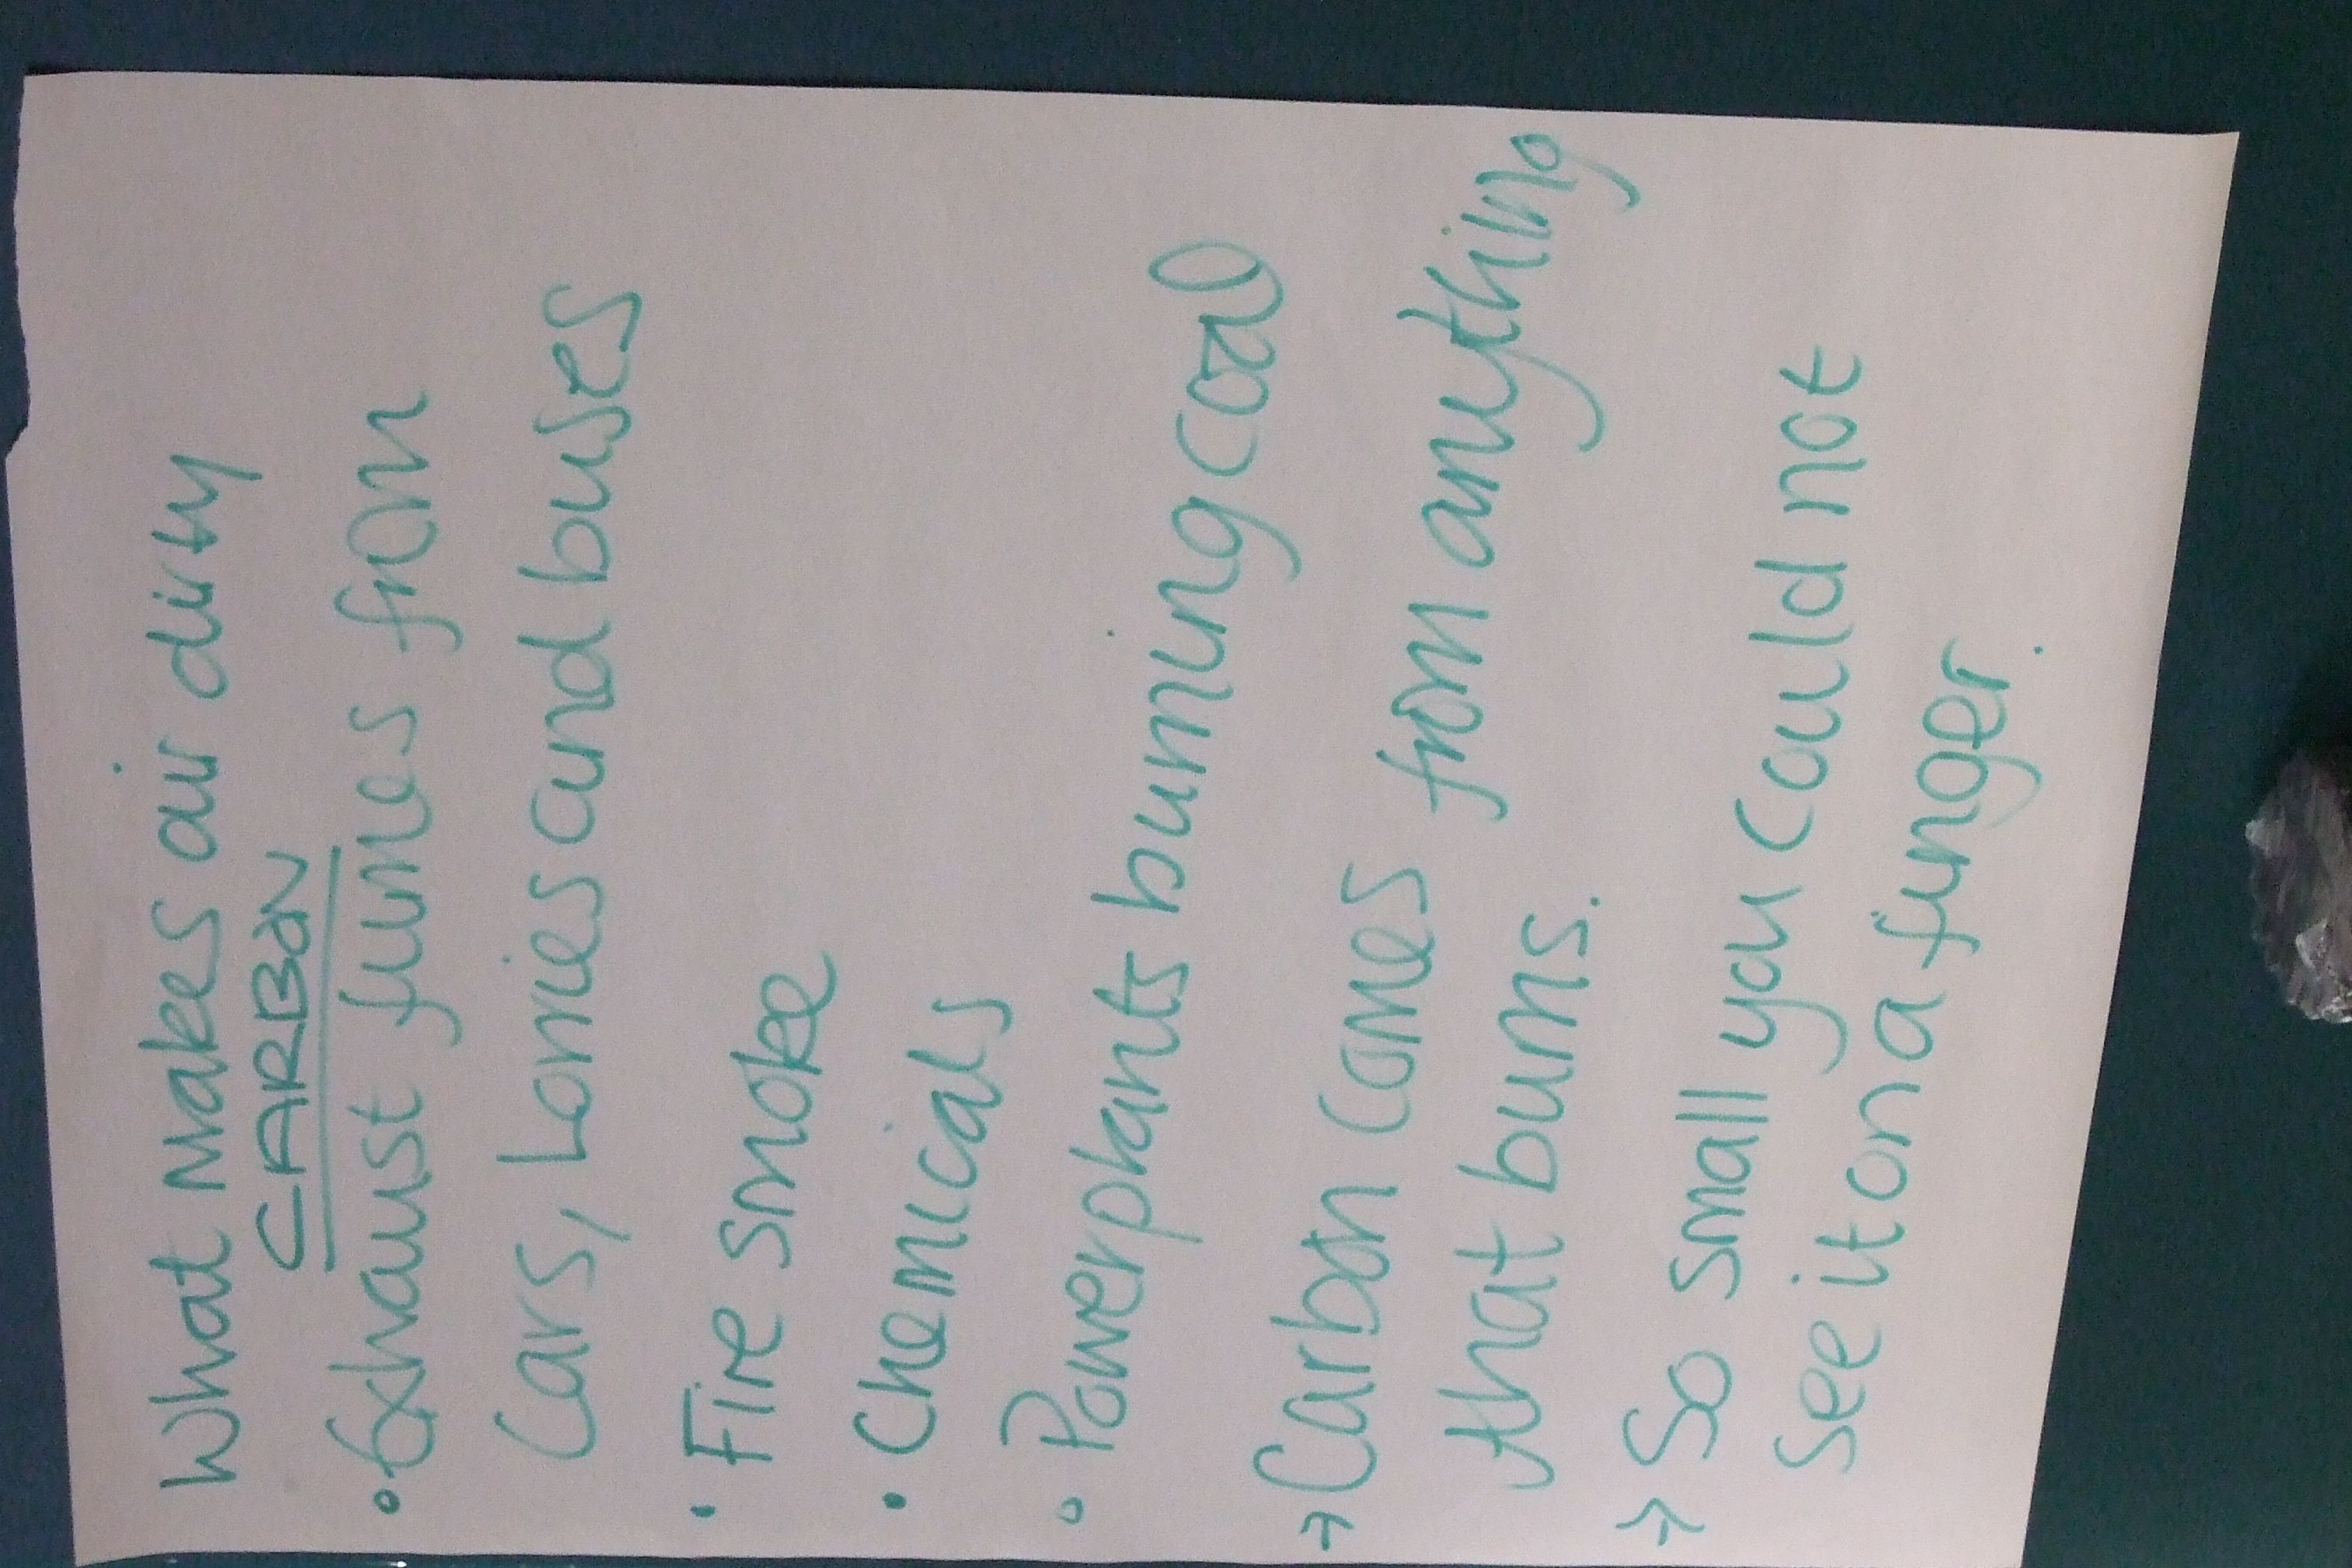 What makes air dirty
CARBON
• Exhaust fumes from
Cars, Lorries and buses
• Fire smoke
• Chemicals
• Powerplants burning coal
→ Carbon comes from anything
that burns.
→ So small you could not
see it on a finger.